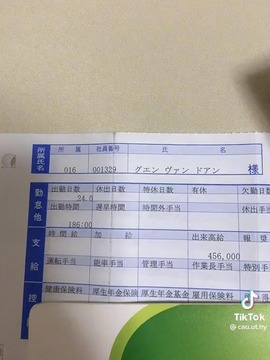 所属氏名 所 属 社員番号 氏 名
016 001329 グエン ヴァン ドアン 様
勤怠他 出勤日数 休出日数 特休日数 有休 欠勤日数
24.0
出勤時間 遅早時間 時間外手当 休出手当
186:00
支給 時間給 加 給 出来高給 報 奨
456,000
運転手当 能率手当 管理手当 作業長手当 特別手
控 健康保険料 厚生年金保険 厚生年金基金 雇用保険料
TikTok
@cau.ut.hy